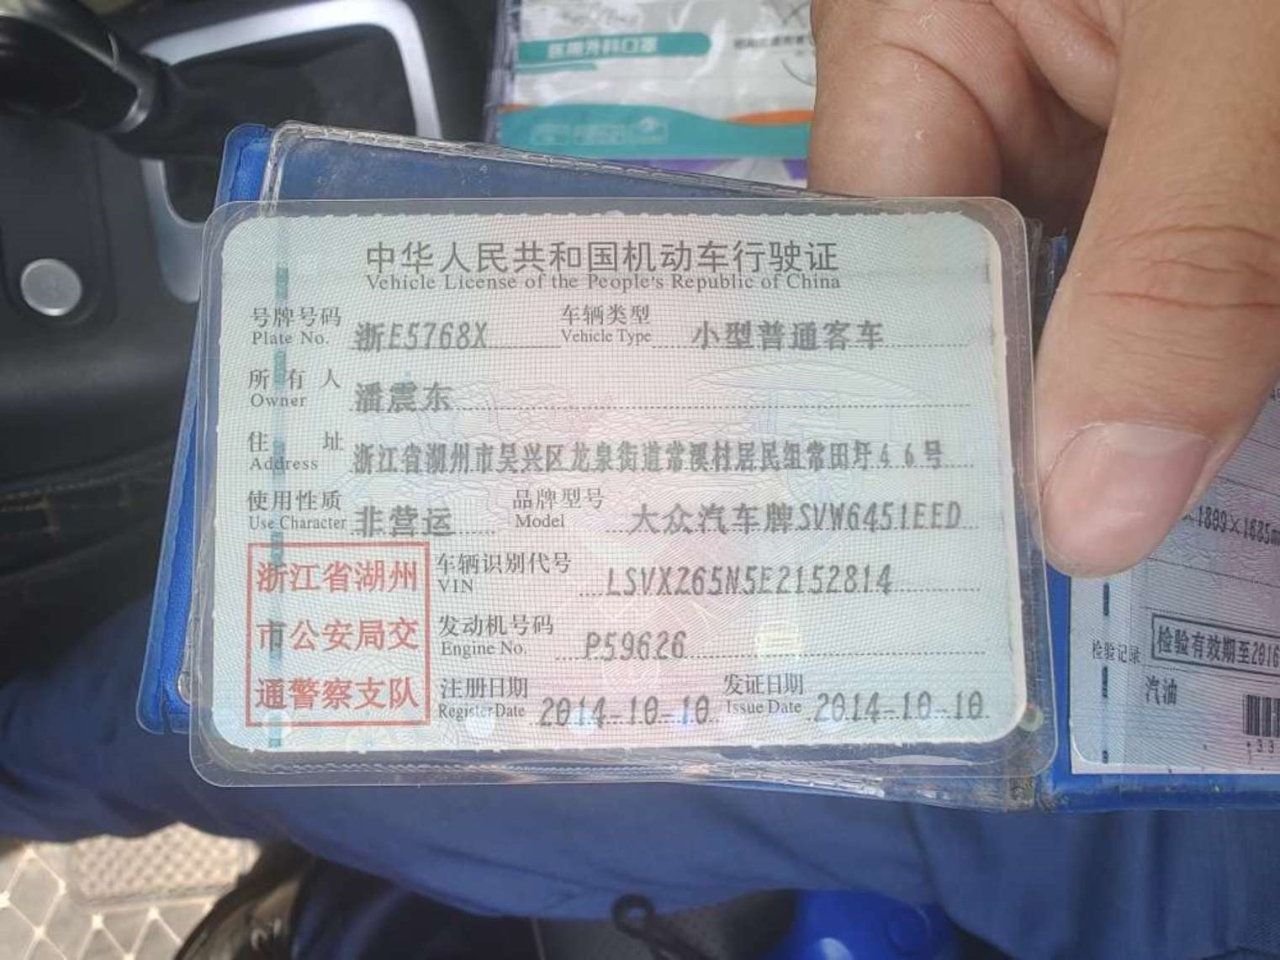 医用外科口罩
中华人民共和国机动车行驶证
Vehicle License of the People's Republic of China
号牌号码 浙E5768X 车辆类型 小型普通客车
Plate No. Vehicle Type
所有人 潘震东
Owner
住址 浙江省湖州市吴兴区龙泉街道常溪村居民组常田圩46号
Address
使用性质 非营运 品牌型号 大众汽车牌SVW6451EED
Use Character Model
浙江省湖州
市公安局交
通警察支队
车辆识别代号 LSVXZ65N5E2152814
VIN
发动机号码 P59626
Engine No.
注册日期 2014-10-10 发证日期 2014-10-10
Register Date Issue Date
×1899×1685m
检验记录 检验有效期至2016
汽油